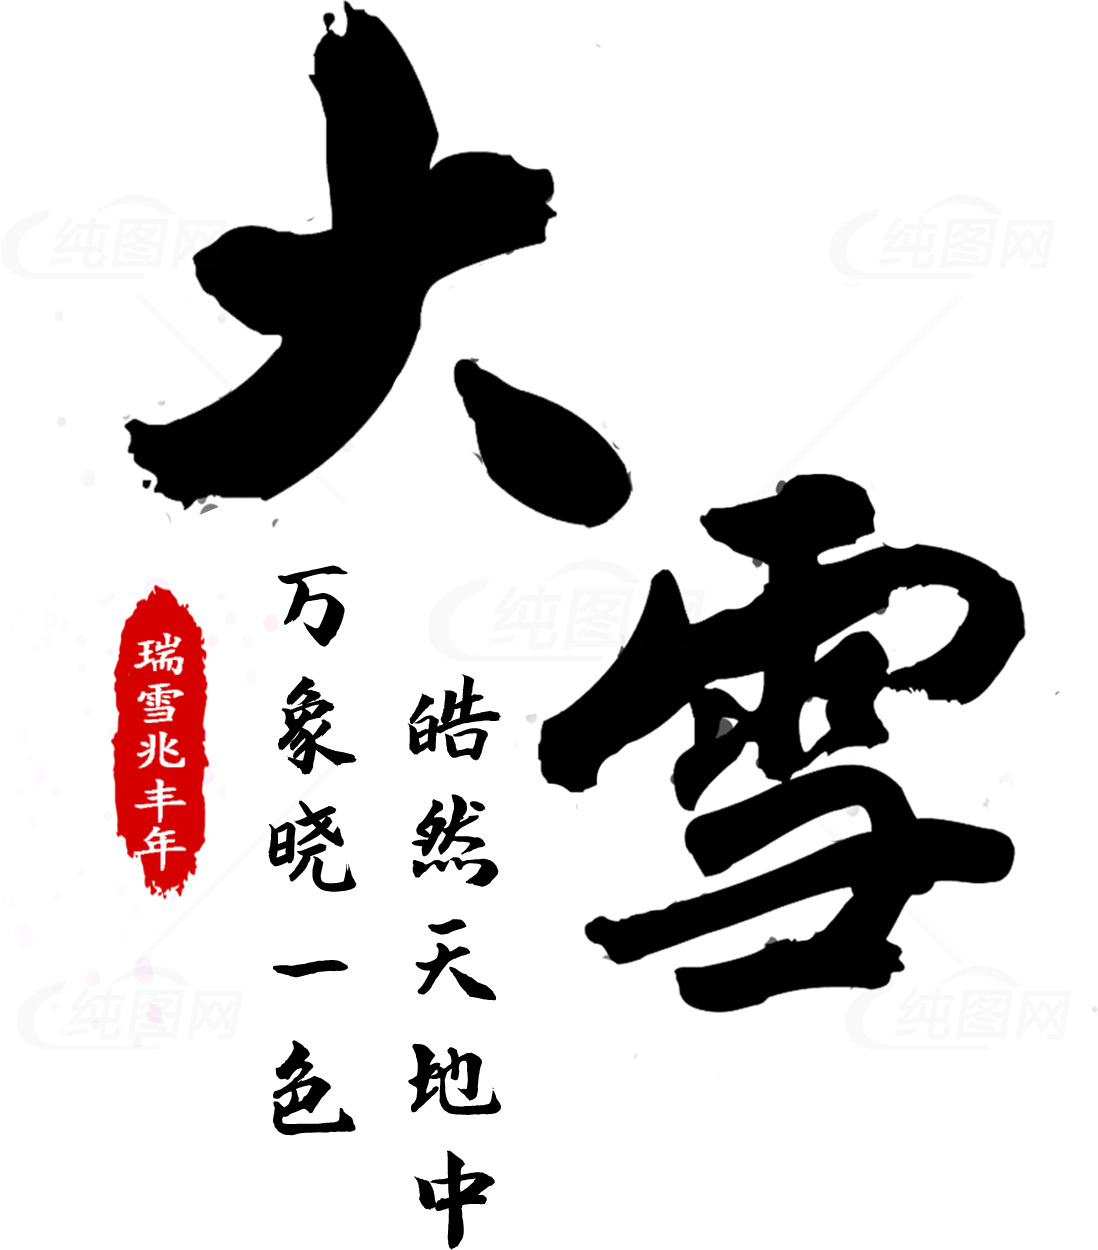 大雪
皓然天地中
万象晓一色
瑞雪兆丰年
纯图网
纯图网
纯图网
纯图网
纯图网